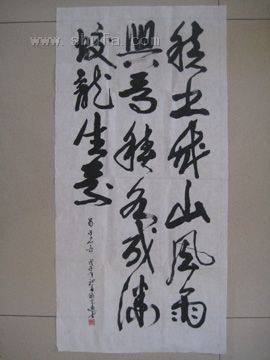 積土成山風雨
興焉積水成淵
蛟龍生焉